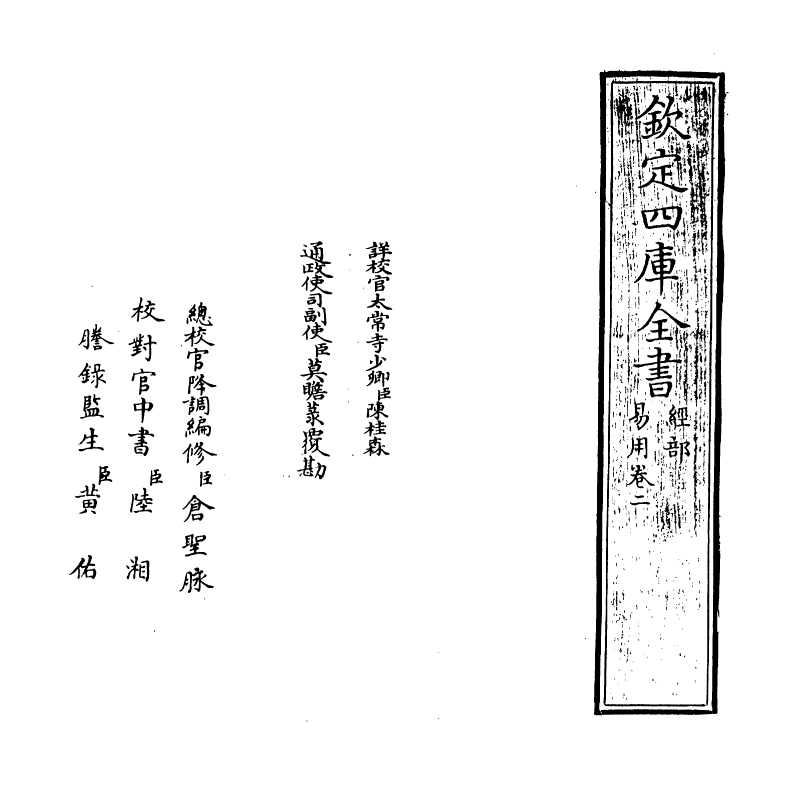 欽定四庫全書
經部
易用卷二
詳校官太常寺少卿臣陳桂森
通政使司副使臣莫瞻菉覆勘
總校官降調編修臣倉聖脉
校對官中書臣陸湘
謄錄監生臣黃佑